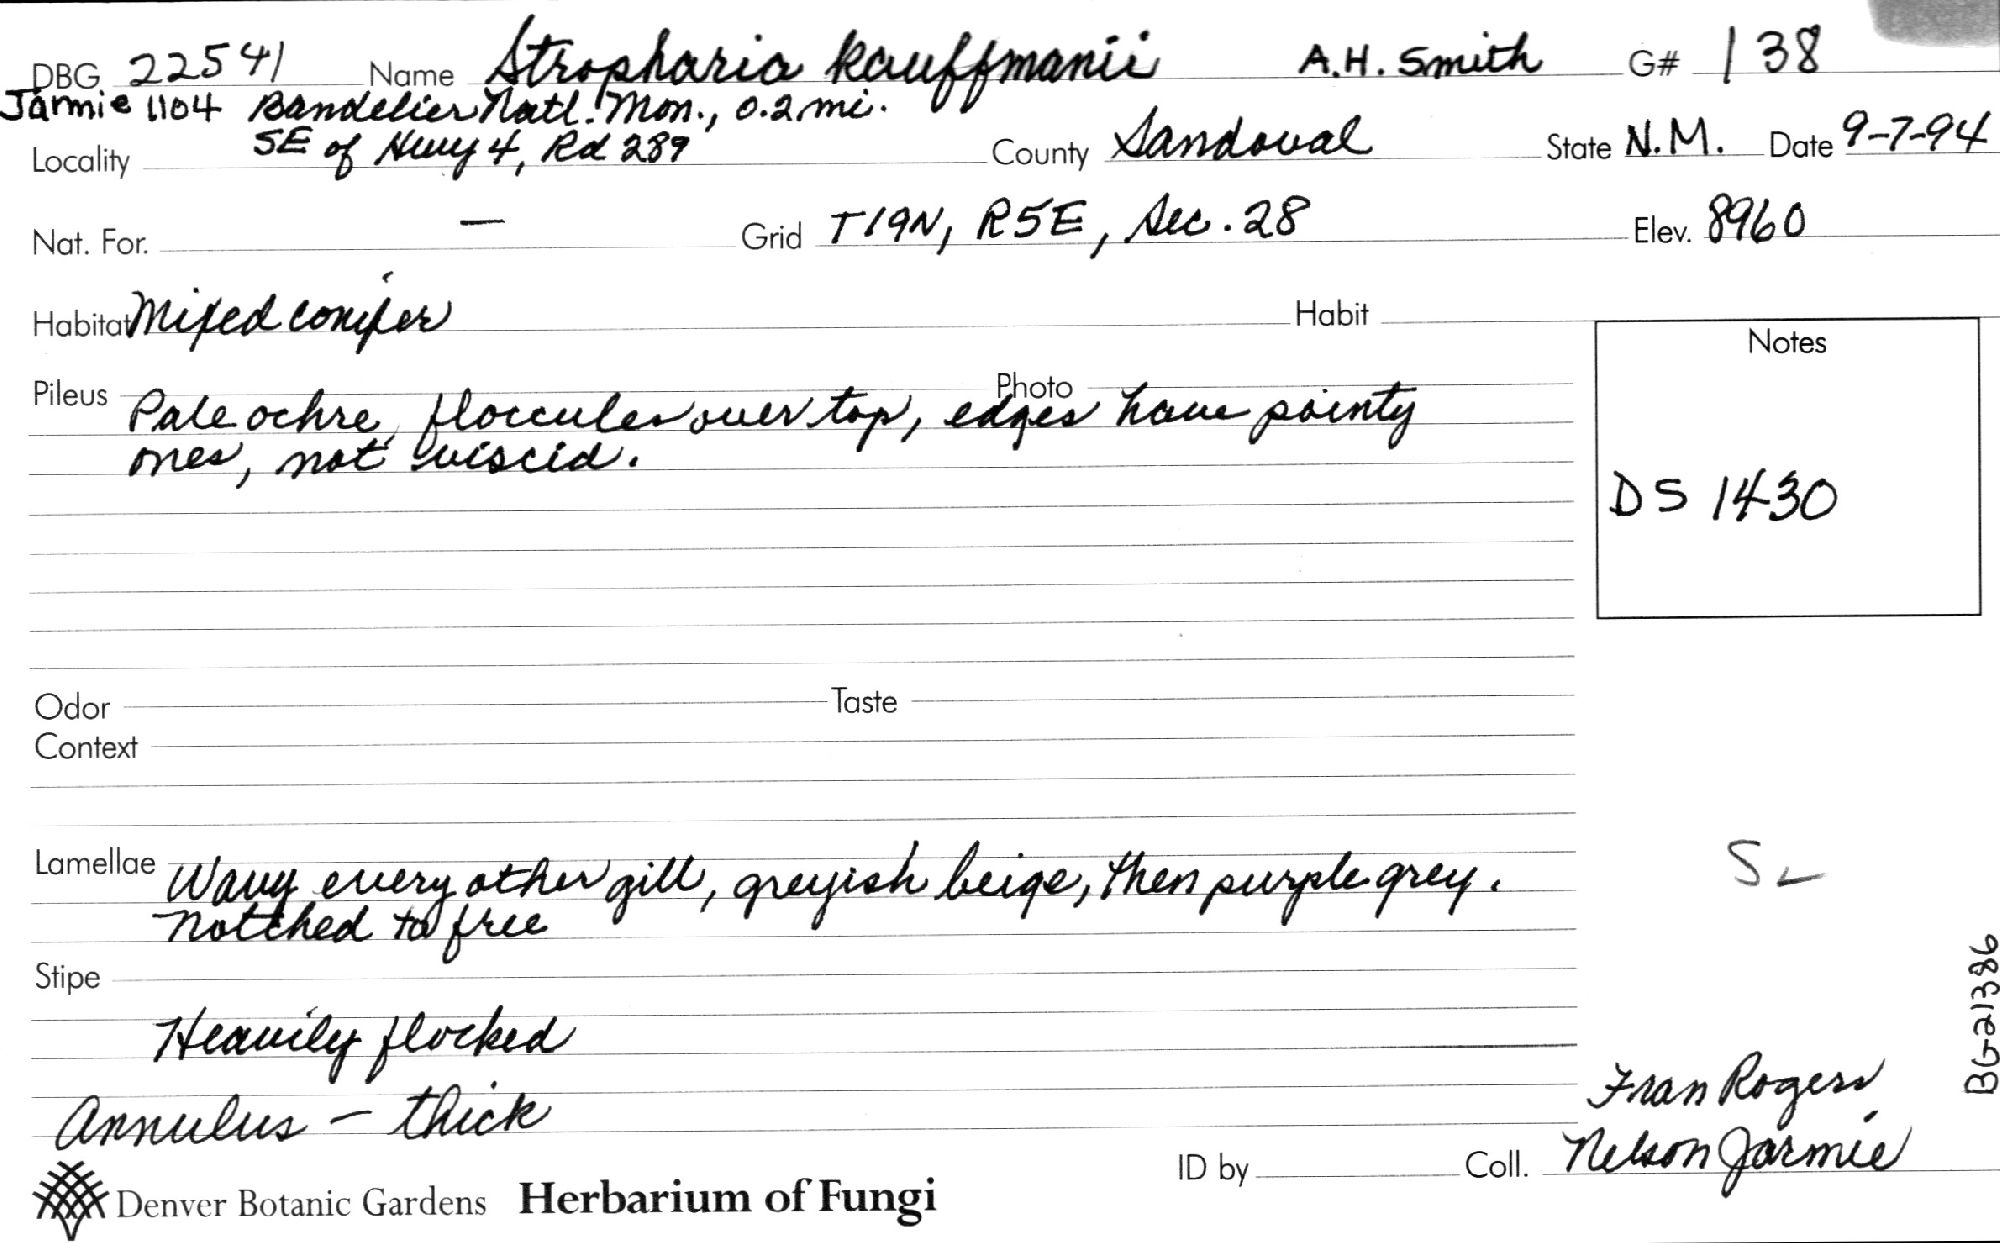 DBG 22541 Name Stropharia kauffmanii A.H. Smith G# 138
Jarmie 1104 Bandelier Natl. Mon., 0.2 mi.
Locality SE of Hwy 4, Rd 289 County Sandoval State N.M. Date 9-7-94
Nat. For. — Grid T19N, R5E, Sec. 28 Elev. 8960
Habitat Mixed conifer Habit
Notes
Pileus Photo
Pale ochre, floccules over top, edges have pointy
ones, not viscid.
DS 1430
Odor Taste
Context
Lamellae Wavy every other gill, greyish beige, then purple grey.
Notched to free
Stipe
Heavily flocked
Annulus - thick
BG-21386
Fran Rogers
ID by Coll. Nelson Jarmie
Denver Botanic Gardens Herbarium of Fungi